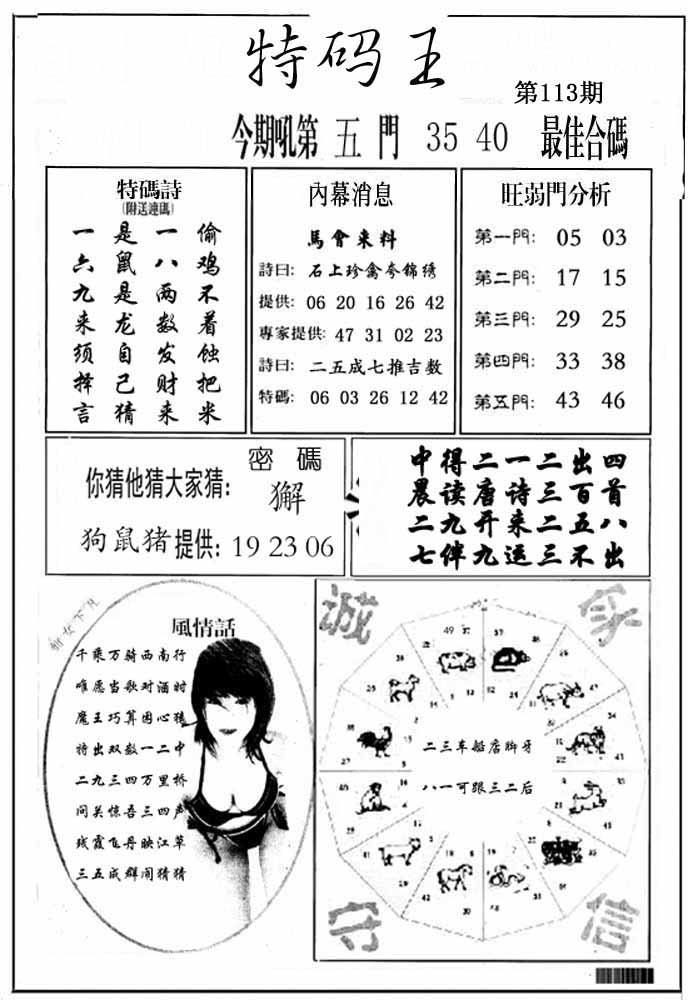 特码王
第113期
今期吼第 五 門 35 40 最佳合碼
特碼詩
(附送連碼)
一 是 一 偷
六 鼠 八 鸡
九 是 两 不
来 龙 数 着
须 自 发 蚀
择 己 财 把
言 猜 来 米
內幕消息
馬會来料
詩曰: 石上珍禽夸錦绣
提供: 06 20 16 26 42
專家提供: 47 31 02 23
詩曰: 二五成七推吉数
特碼: 06 03 26 12 42
旺弱門分析
第一門: 05 03
第二門: 17 15
第三門: 29 25
第四門: 33 38
第五門: 43 46
密碼
你猜他猜大家猜: 獬
狗鼠猪 提供: 19 23 06
中得二一二出四
晨读唐诗三百首
二九开来二五八
七伴九运三不出
風情話
千乘万骑西南行
唯愿当歌对酒时
魔王巧算困心猿
特出双数一二中
二九三四万里桥
间关惊吾三四声
残霞飞丹映江草
三五成群闹猜猜
诚
家
二三车船店脚牙
八一可跟三二后
守
信